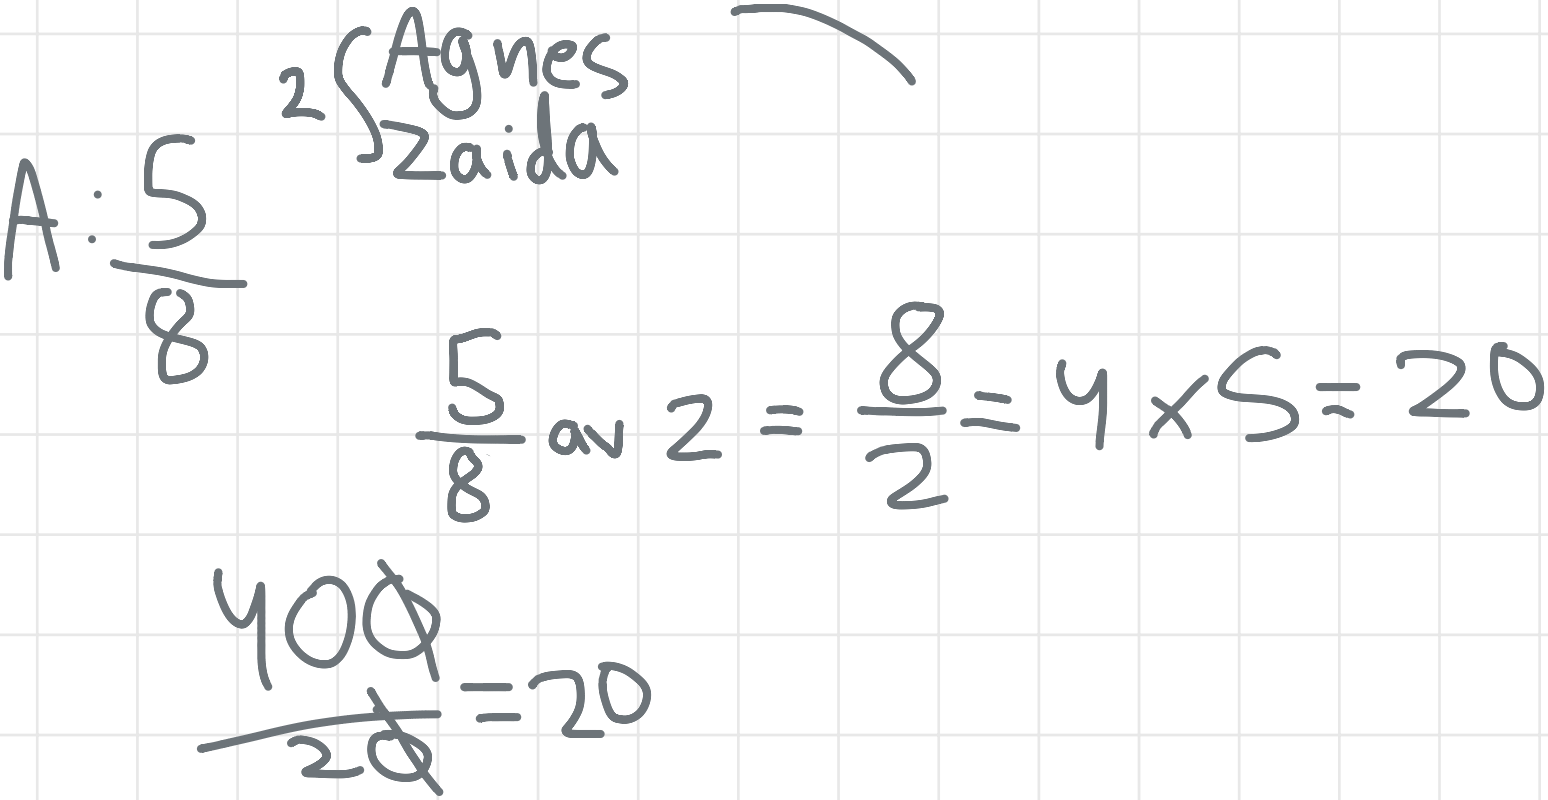 2 { Agnes
Zaida
A: 5/8
5/8 av 2 = 8/2 = 4 x 5 = 20
400/20 = 20